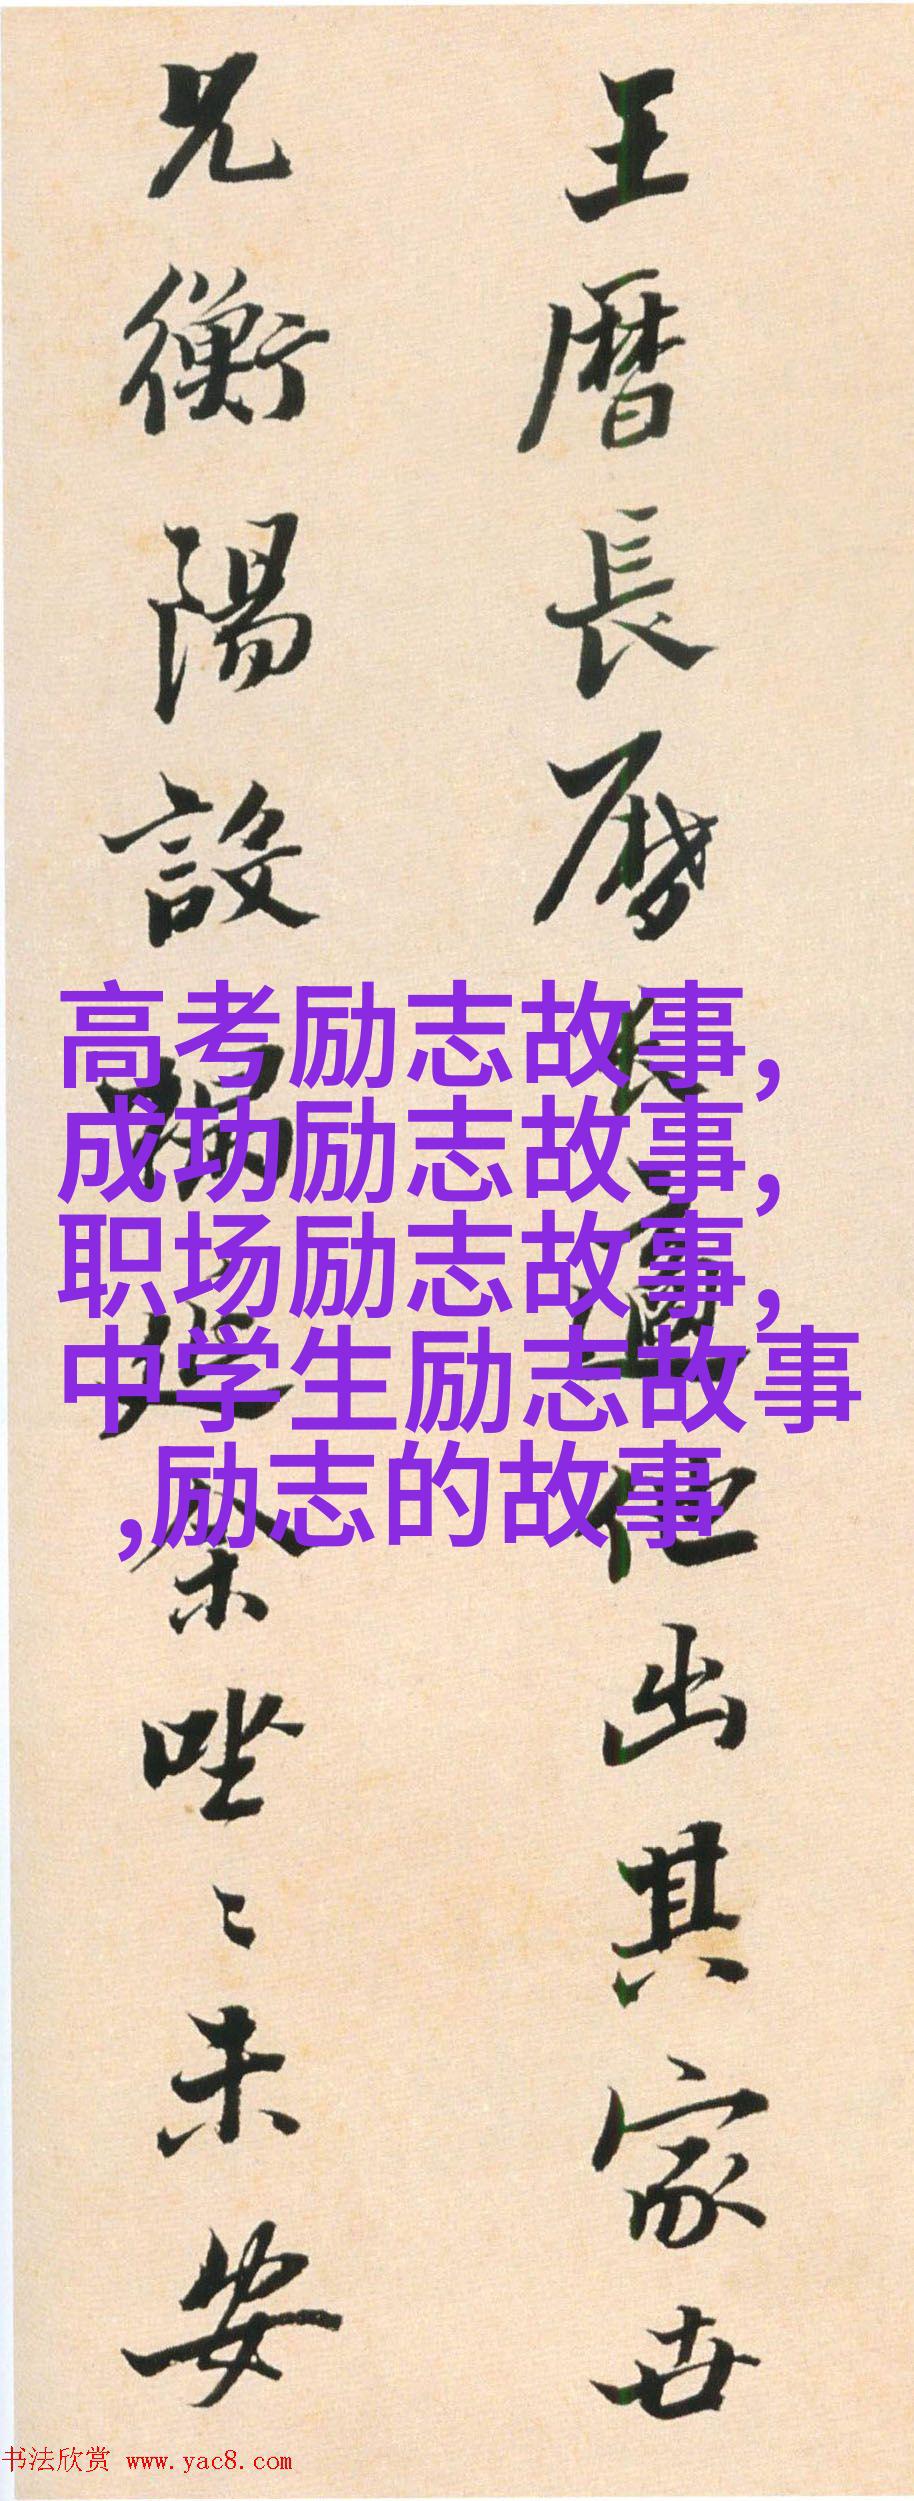 王曆長曆
出其家世
兄衡陽設
坐〻未安
高考励志故事,
成功励志故事,
职场励志故事,
中学生励志故事
,励志的故事
书法欣赏 www.yac8.com